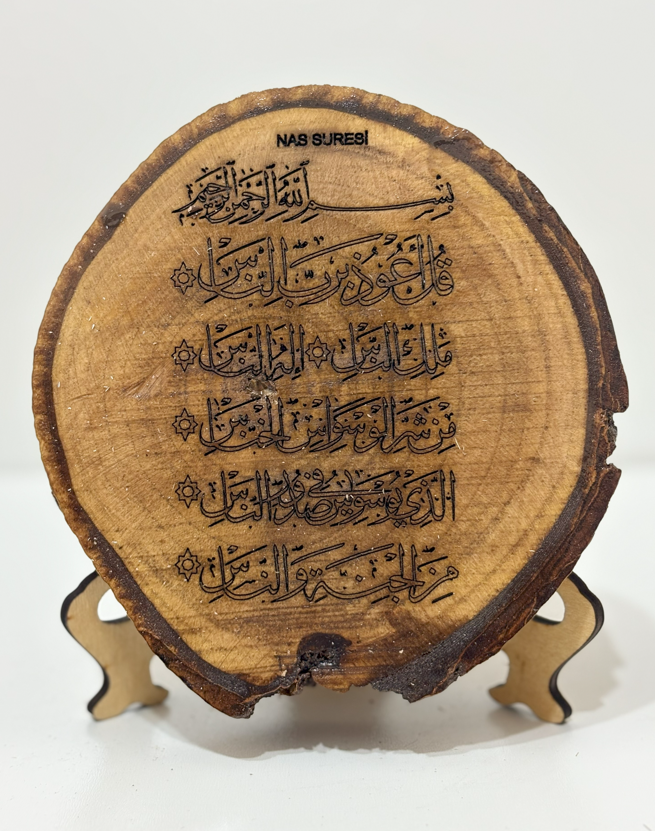 NAS SURESİ
بِسْمِ اللَّهِ الرَّحْمَنِ الرَّحِيمِ
قُلْ أَعُوذُ بِرَبِّ النَّاسِ
مَلِكِ النَّاسِ إِلَهِ النَّاسِ
مِنْ شَرِّ الْوَسْوَاسِ الْخَنَّاسِ
الَّذِي يُوَسْوِسُ فِي صُدُورِ النَّاسِ
مِنَ الْجِنَّةِ وَالنَّاسِ